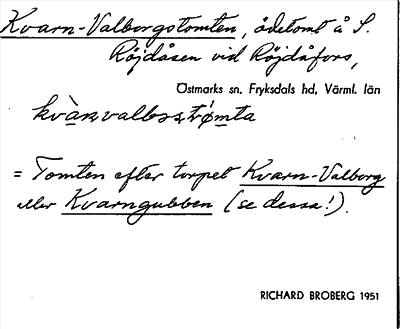 Kvarn-Valborgstomten, ödetomt å S.
Röjdåsen vid Röjdåfors,
Östmarks sn, Fryksdals hd, Värml. län
= Tomten efter torpet Kvarn-Valborg
eller Kvarngubben (se dessa!).
RICHARD BROBERG 1951